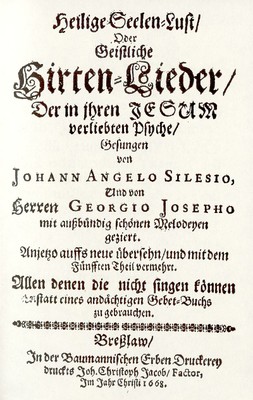 Heilige Seelen-Lust/
Oder
Geistliche
Hirten-Lieder/
Der in jhren JESUM
verliebten Psyche/
Gesungen
von
JOHANN ANGELO SILESIO,
Und von
Herren GEORGIO JOSEPHO
mit außbündig schönen Melodeyen
geziert.
Anjetzo auffs neue übersehn/und mit dem
Fünfften Theil vermehrt.
Allen denen die nicht singen können
statt eines andächtigen Gebet-Buchs
zu gebrauchen.
Breßlaw/
In der Baumannischen Erben Druckerey
druckts Joh. Christoph Jacob/ Factor,
Im Jahr Christi 1668.